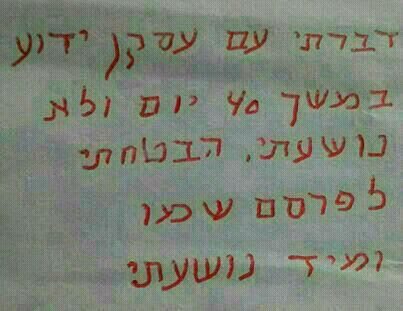 דברתי עם עסקן ידוע
במשך 40 יום ולא
נושעתי, הבטחתי
לפרסם שמו
ומיד נושעתי